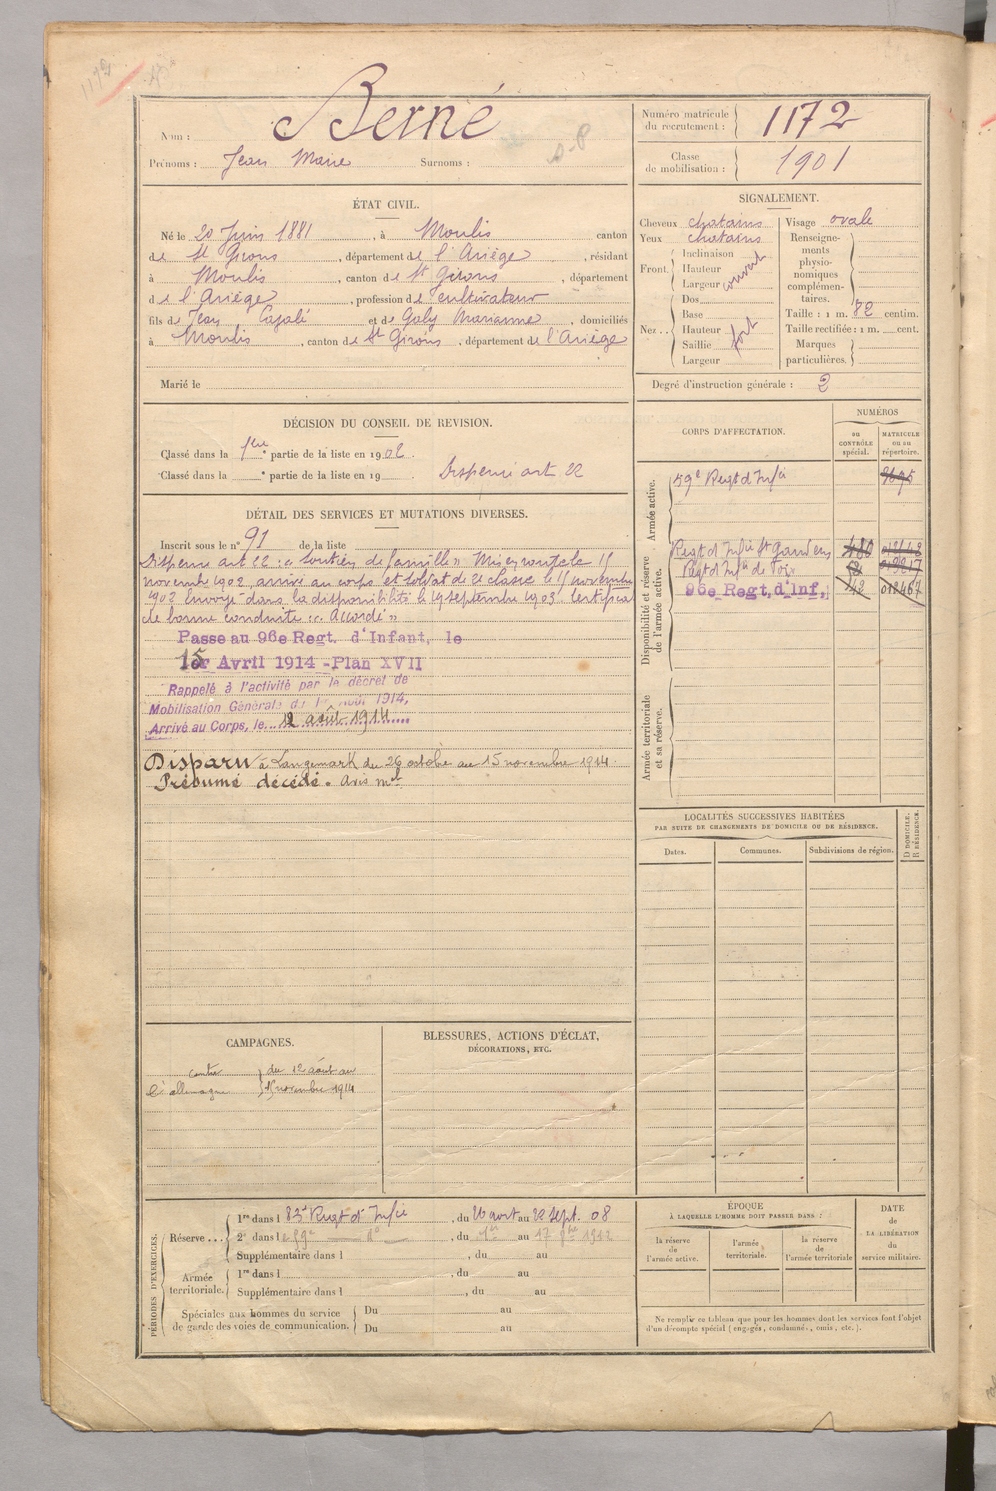 1172
Nom : Berné
Prénoms : Jean Marie Surnoms :
Numéro matricule du recrutement : 1172
Classe de mobilisation : 1901
ÉTAT CIVIL.
Né le 20 Juin 1881, à Moulis canton
de St Girons, département de l'Ariège, résidant
à Moulis, canton de St Girons, département
de l'Ariège, profession de cultivateur
fils de Jean Cazalé et de Galy Marianne, domiciliés
à Moulis, canton de St Girons, département de l'Ariège
Marié le
SIGNALEMENT.
Cheveux chatains Visage ovale
Yeux chatains
Front. Inclinaison Hauteur Largeur couvert
Nez.. Dos Base Hauteur Saillie Largeur fort
Renseignements physionomiques complémentaires.
Taille : 1 m. 82 centim.
Taille rectifiée : 1 m. cent.
Marques particulières.
Degré d'instruction générale : 2
DÉCISION DU CONSEIL DE REVISION.
Classé dans la 1ère partie de la liste en 1902.
Classé dans la e partie de la liste en 19 Dispensé art 22
CORPS D'AFFECTATION.
NUMÉROS
au CONTRÔLE spécial.
MATRICULE ou au répertoire.
Armée active.
59e Regt d'Infie
Disponibilité et réserve de l'armée active.
Regt d'Infie St Gaudens
Regt d'Infie de Foix
96e Regt, d'Inf,
Armée territoriale et sa réserve.
DÉTAIL DES SERVICES ET MUTATIONS DIVERSES.
Inscrit sous le n° 91 de la liste
Dispensé art 22 : « soutien de famille » Mis en route le 15
novembre 1902, arrivé au corps et soldat de 2e classe le 15 novembre
1902 Envoyé dans la disponibilité le 19 septembre 1903. Certificat
de bonne conduite : « Accordé »
Passe au 96e Regt. d'Infant, le
15 Avril 1914 - Plan XVII
Rappelé à l'activité par le décret de
Mobilisation Générale du 1er août 1914,
Arrivé au Corps, le... 12 août 1914....
Disparu à Langemark du 26 octobre au 15 novembre 1914
Présumé décédé. Avis mel
LOCALITÉS SUCCESSIVES HABITÉES
PAR SUITE DE CHANGEMENTS DE DOMICILE OU DE RÉSIDENCE.
Dates. Communes. Subdivisions de région. D DOMICILE. R RÉSIDENCE.
CAMPAGNES.
contre l'allemagne } du 12 août au 15 novembre 1914
BLESSURES, ACTIONS D'ÉCLAT,
DÉCORATIONS, ETC.
PÉRIODES D'EXERCICES.
Réserve... 1re dans l 83e Regt d'Infie, du 26 aout au 22 Sept. 08
2e dans l e 59e d°, du 1er au 17 1912
Supplémentaire dans l, du au
Armée territoriale. 1re dans l, du au
Supplémentaire dans l, du au
Spéciales aux hommes du service de garde des voies de communication. Du au
Du au
ÉPOQUE
À LAQUELLE L'HOMME DOIT PASSER DANS :
la réserve de l'armée active.
l'armée territoriale.
la réserve de l'armée territoriale
DATE DE LA LIBÉRATION du service militaire.
Ne remplir ce tableau que pour les hommes dont les services font l'objet
d'un décompte spécial (engagés, condamné., omis, etc.).